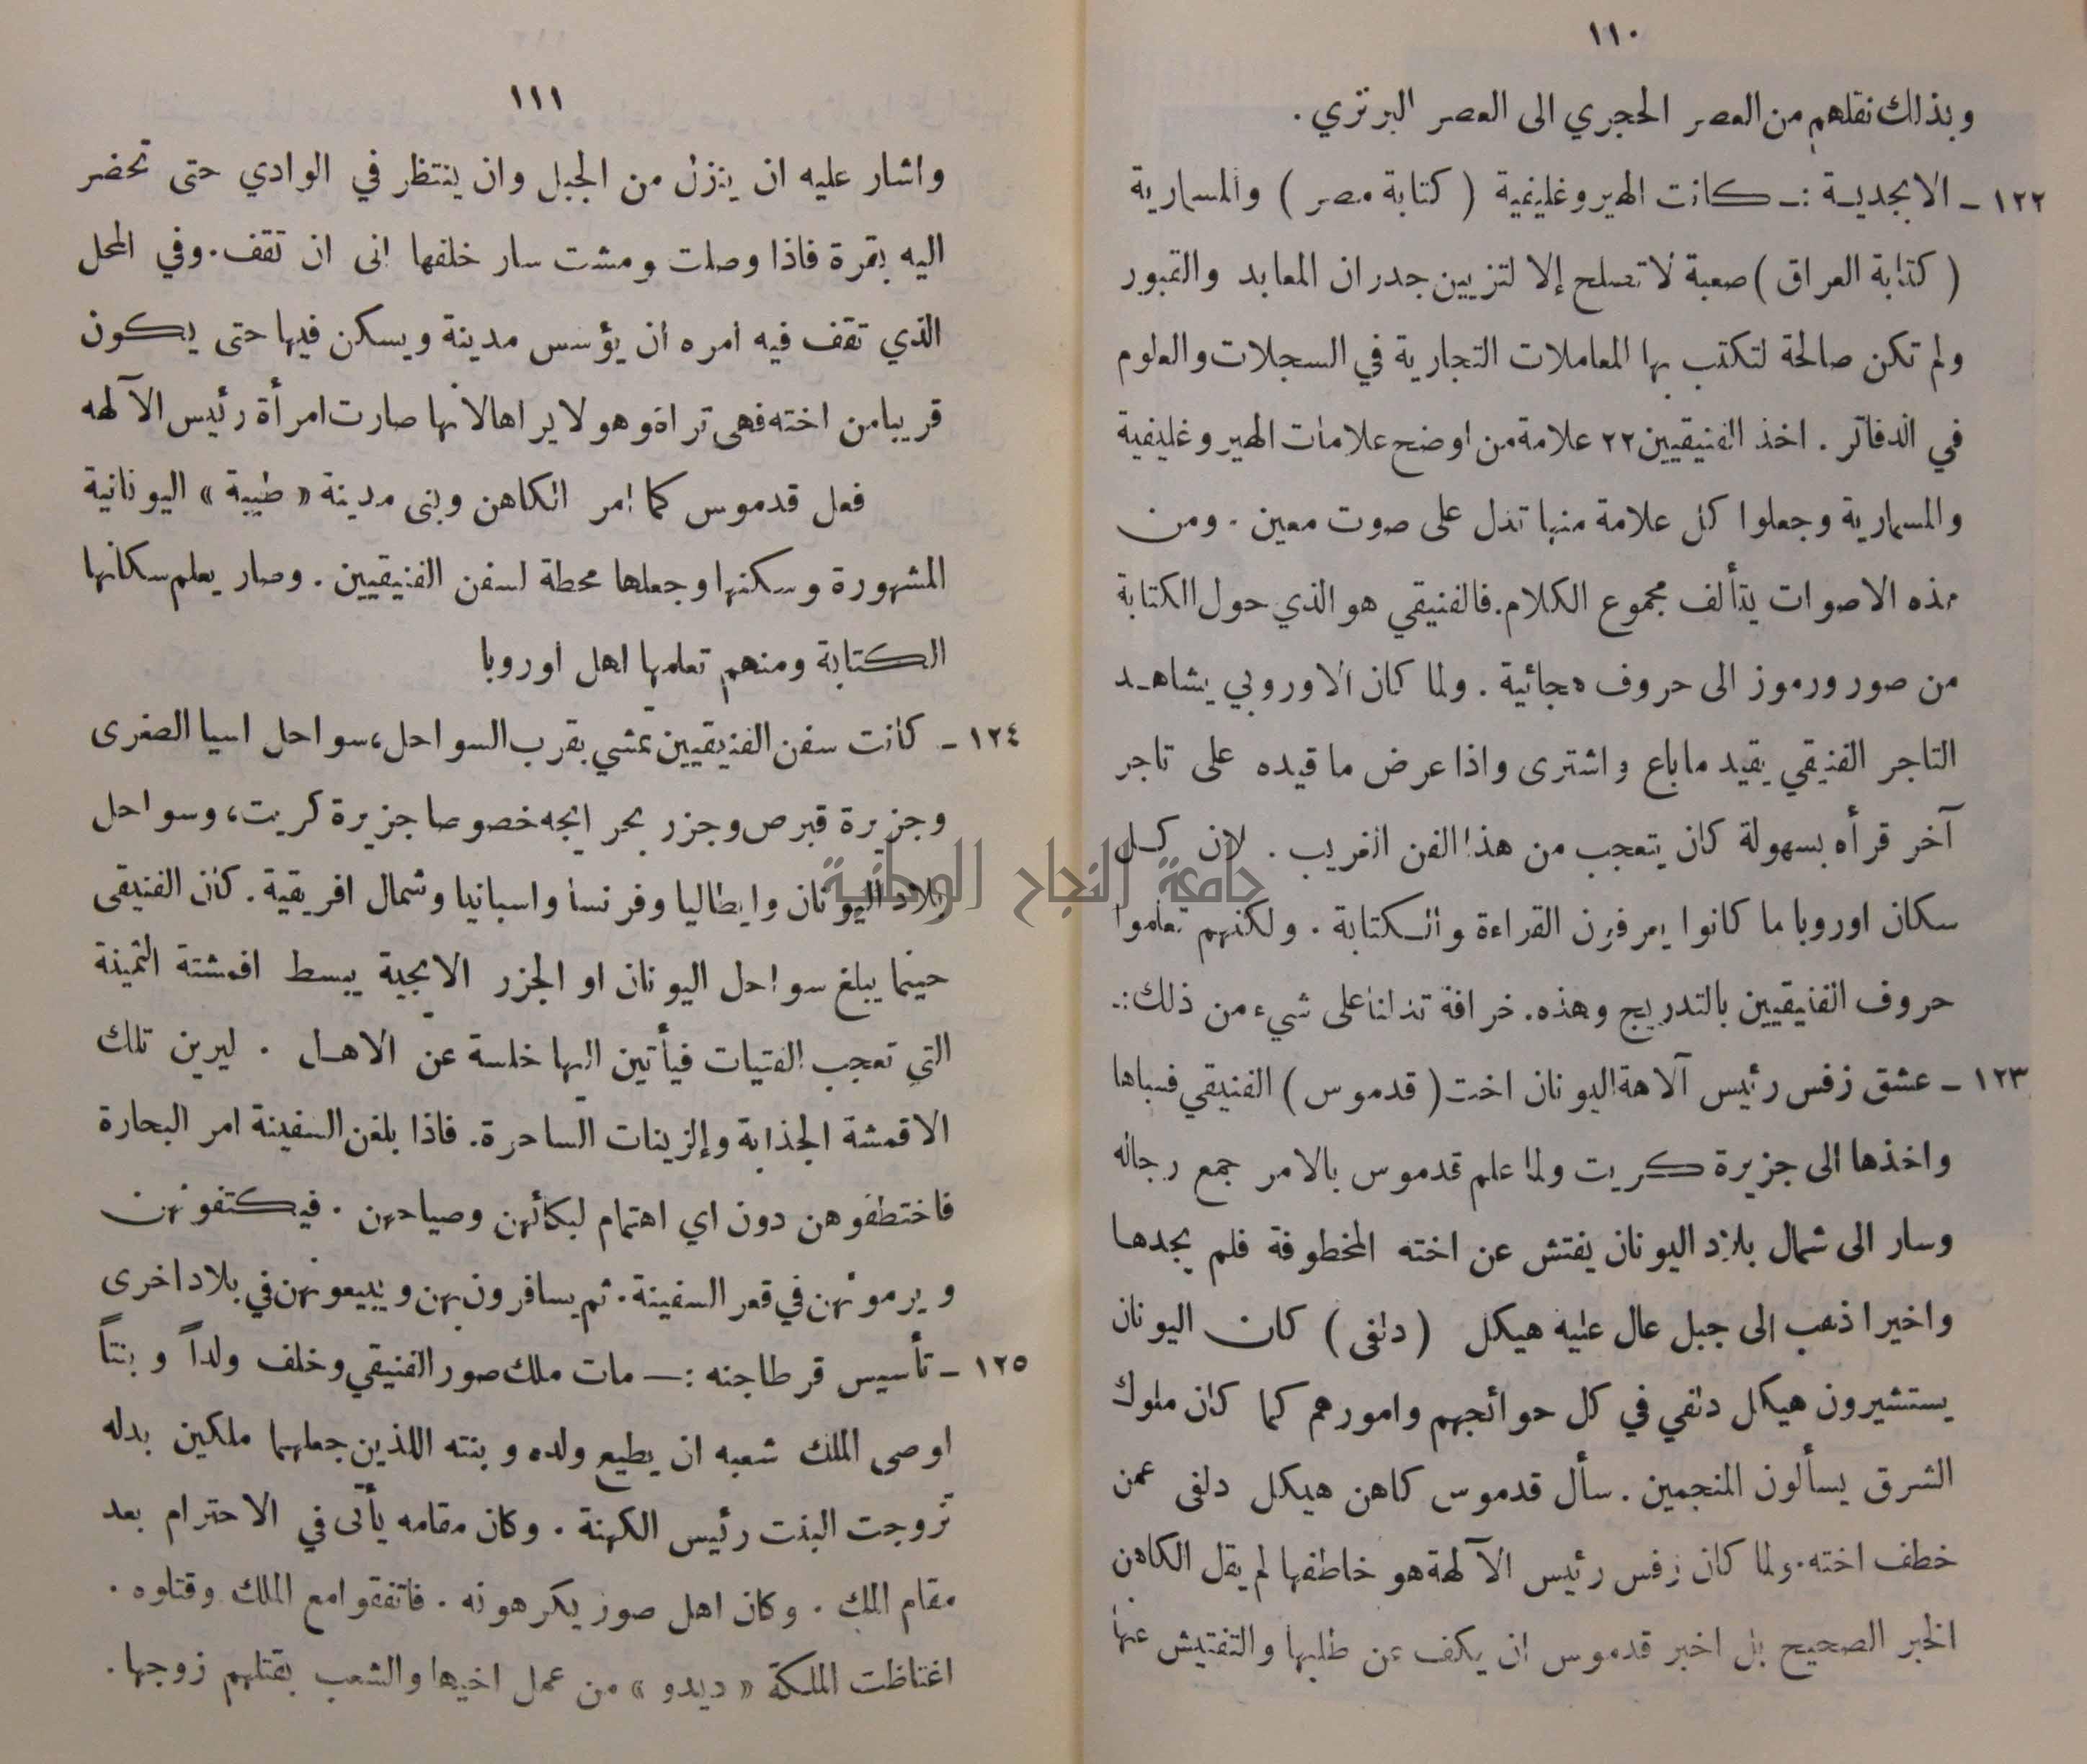 ١١٠
وبذلك نقلهم من العصر الحجري الى العصر البرنزي .
١٢٢ ـ الابجديـة :ـ كانت الهيروغليفية ( كتابة مصر ) والمسمارية
( كتابة العراق ) صعبة لا تصلح إلا لتزيين جدران المعابد والقبور
ولم تكن صالحة لتكتب بها المعاملات التجارية في السجلات والعلوم
في الدفاتر . اخذ الفنيقيين ٢٢ علامة من اوضح علامات الهيروغليفية
والمسمارية وجعلوا كل علامة منها تدل على صوت معين . ومن
هذه الاصوات يتألف مجموع الكلام . فالفنيقي هو الذي حول الكتابة
من صور ورموز الى حروف هجائية . ولما كان الاوروبي يشاهـد
التاجر الفنيقي يقيد ما باع واشترى واذا عرض ما قيده على تاجر
آخر قرأه بسهولة كان يتعجب من هذا الفن الغريب . لان كـل
سكان اوروبا ما كانوا يعرفون القراءة والكتابة . ولكنهم تعلموا
حروف الفنيقيين بالتدريج وهذه . خرافة تدلنا على شيء من ذلك :ـ
١٢٣ ـ عشق زفس رئيس آلاهة اليونان اخت ( قدموس ) الفنيقي فسباها
واخذها الى جزيرة كريت ولما علم قدموس بالامر جمع رجاله
وسار الى شمال بلاد اليونان يفتش عن اخته المخطوفة فلم يجدها
واخيرا ذهب الى جبل عال عليه هيكل ( دلفى ) كان اليونان
يستشيرون هيكل دلفي في كل حوائجهم وامورهم كما كان ملوك
الشرق يسألون المنجمين . سأل قدموس كاهن هيكل دلفى عمن
خطف اخته . ولما كان زفس رئيس الآلهة هو خاطفها لم يقل الكاهن
الخبر الصحيح بل اخبر قدموس ان يكف عن طلبها والتفتيش عنها
١١١
واشار عليه ان ينزل من الجبل وان ينتظر في الوادي حتى تحضر
اليه بقرة فاذا وصلت ومشت سار خلفها الى ان تقف . وفي المحل
الذي تقف فيه امره ان يؤسس مدينة ويسكن فيها حتى يكون
قريبا من اخته فهى تراه وهو لا يراها لانها صارت امرأة رئيس الآلهه
فعل قدموس كما امر الكاهن وبنى مدينة « طيبة » اليونانية
المشهورة وسكنها وجعلها محطة لسفن الفنيقيين . وصار يعلم سكانها
الكتابة ومنهم تعلمها اهل اوروبا
١٢٤ ـ كانت سفن الفنيقيين تمشي بقرب السواحل، سواحل اسيا الصغرى
وجزيرة قبرص وجزر بحر ايجه خصوصا جزيرة كريت، وسواحل
بلاد اليونان وايطاليا وفرنسا واسبانيا وشمال افريقية . كان الفنيقى
حينما يبلغ سواحل اليونان او الجزر الايجية يبسط اقمشته الثمينة
التي تعجب الفتيات فيأتين اليها خلسة عن الاهـل . ليرين تلك
الاقمشة الجذابة والزينات الساحرة . فاذا بلغن السفينة امر البحارة
فاختطفوهن دون اي اهتمام لبكائهن وصياحهن . فيكتفونهن
ويرمونهن في قعر السفينة . ثم يسافرون بهن ويبيعونهن في بلاد اخرى
١٢٥ ـ تأسيس قرطاجنه :ـ مات ملك صور الفنيقي وخلف ولداً وبنتاً
اوصى الملك شعبه ان يطيع ولده وبنته اللذين جعلهما ملكين بدله
تزوجت البنت رئيس الكهنة . وكان مقامه يأتى في الاحترام بعد
مقام الملك . وكان اهل صور يكرهونه . فاتفقوا مع الملك وقتلوه .
اغتاظت الملكة « ديدو » من عمل اخيها والشعب بقتلهم زوجها .
جامعة النجاح الوطنية